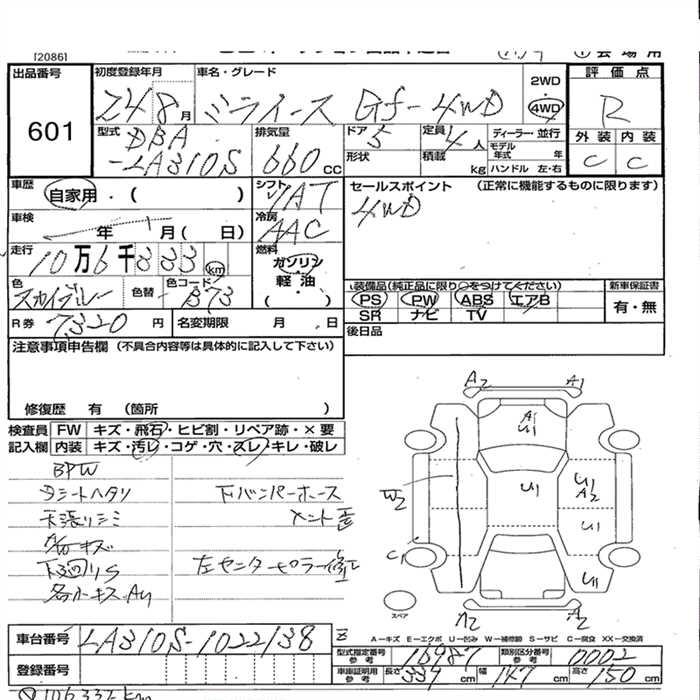 [2086]
出品番号
601
初度登録年月
24 8 月
車名・グレード
ミライース Gf-4WD
2WD
4WD
評価点
R
外装 内装
C C
型式
DBA
-LA310S
排気量
660 cc
ドア 5
形状
定員 4 人
積載 kg
ディーラー・並行
モデル年式 年
ハンドル 左・右
車歴
自家用・( )
シフト
7AT
セールスポイント (正常に機能するものに限ります)
4WD
車検
年 月( 日)
冷房
AAC
走行
10万6千333 km
燃料
ガソリン
軽油・
( )
色
スカイグレー
色替
色コード
B73
装備品(純正品に限り○をつけてください)
PS PW ABS エアB
SR ナビ TV
新車保証書
有・無
R券 7,320 円
名変期限 月 日
後日品
注意事項申告欄 (不具合内容等は具体的に記入して下さい)
修復歴 有 (箇所 )
検査員 FW キズ・飛石・ヒビ割・リペア跡・×要
記入欄 内装 キズ・汚レ・コゲ・穴・スレ・キレ・破レ
BPW
シートヘタリ
天張リシミ
キズ
下廻りS
各所キズ・AU
下バンパーホース
メント歪
左センターピラー修正
A2 A1
A1
U1
U1
U1
A2
U1
W2
C1
U1
A2 A2
スペア
A-キズ E-エクボ U-凹み W-補修跡 S-サビ C-腐食 XX-交換済
車台番号 LA310S-1022138
登録番号
型式指定番号 参考 16987
類別区分番号 参考 0002
車庫証明用 参考 長さ 339 cm 幅 147 cm 高さ 150 cm
106,333 km